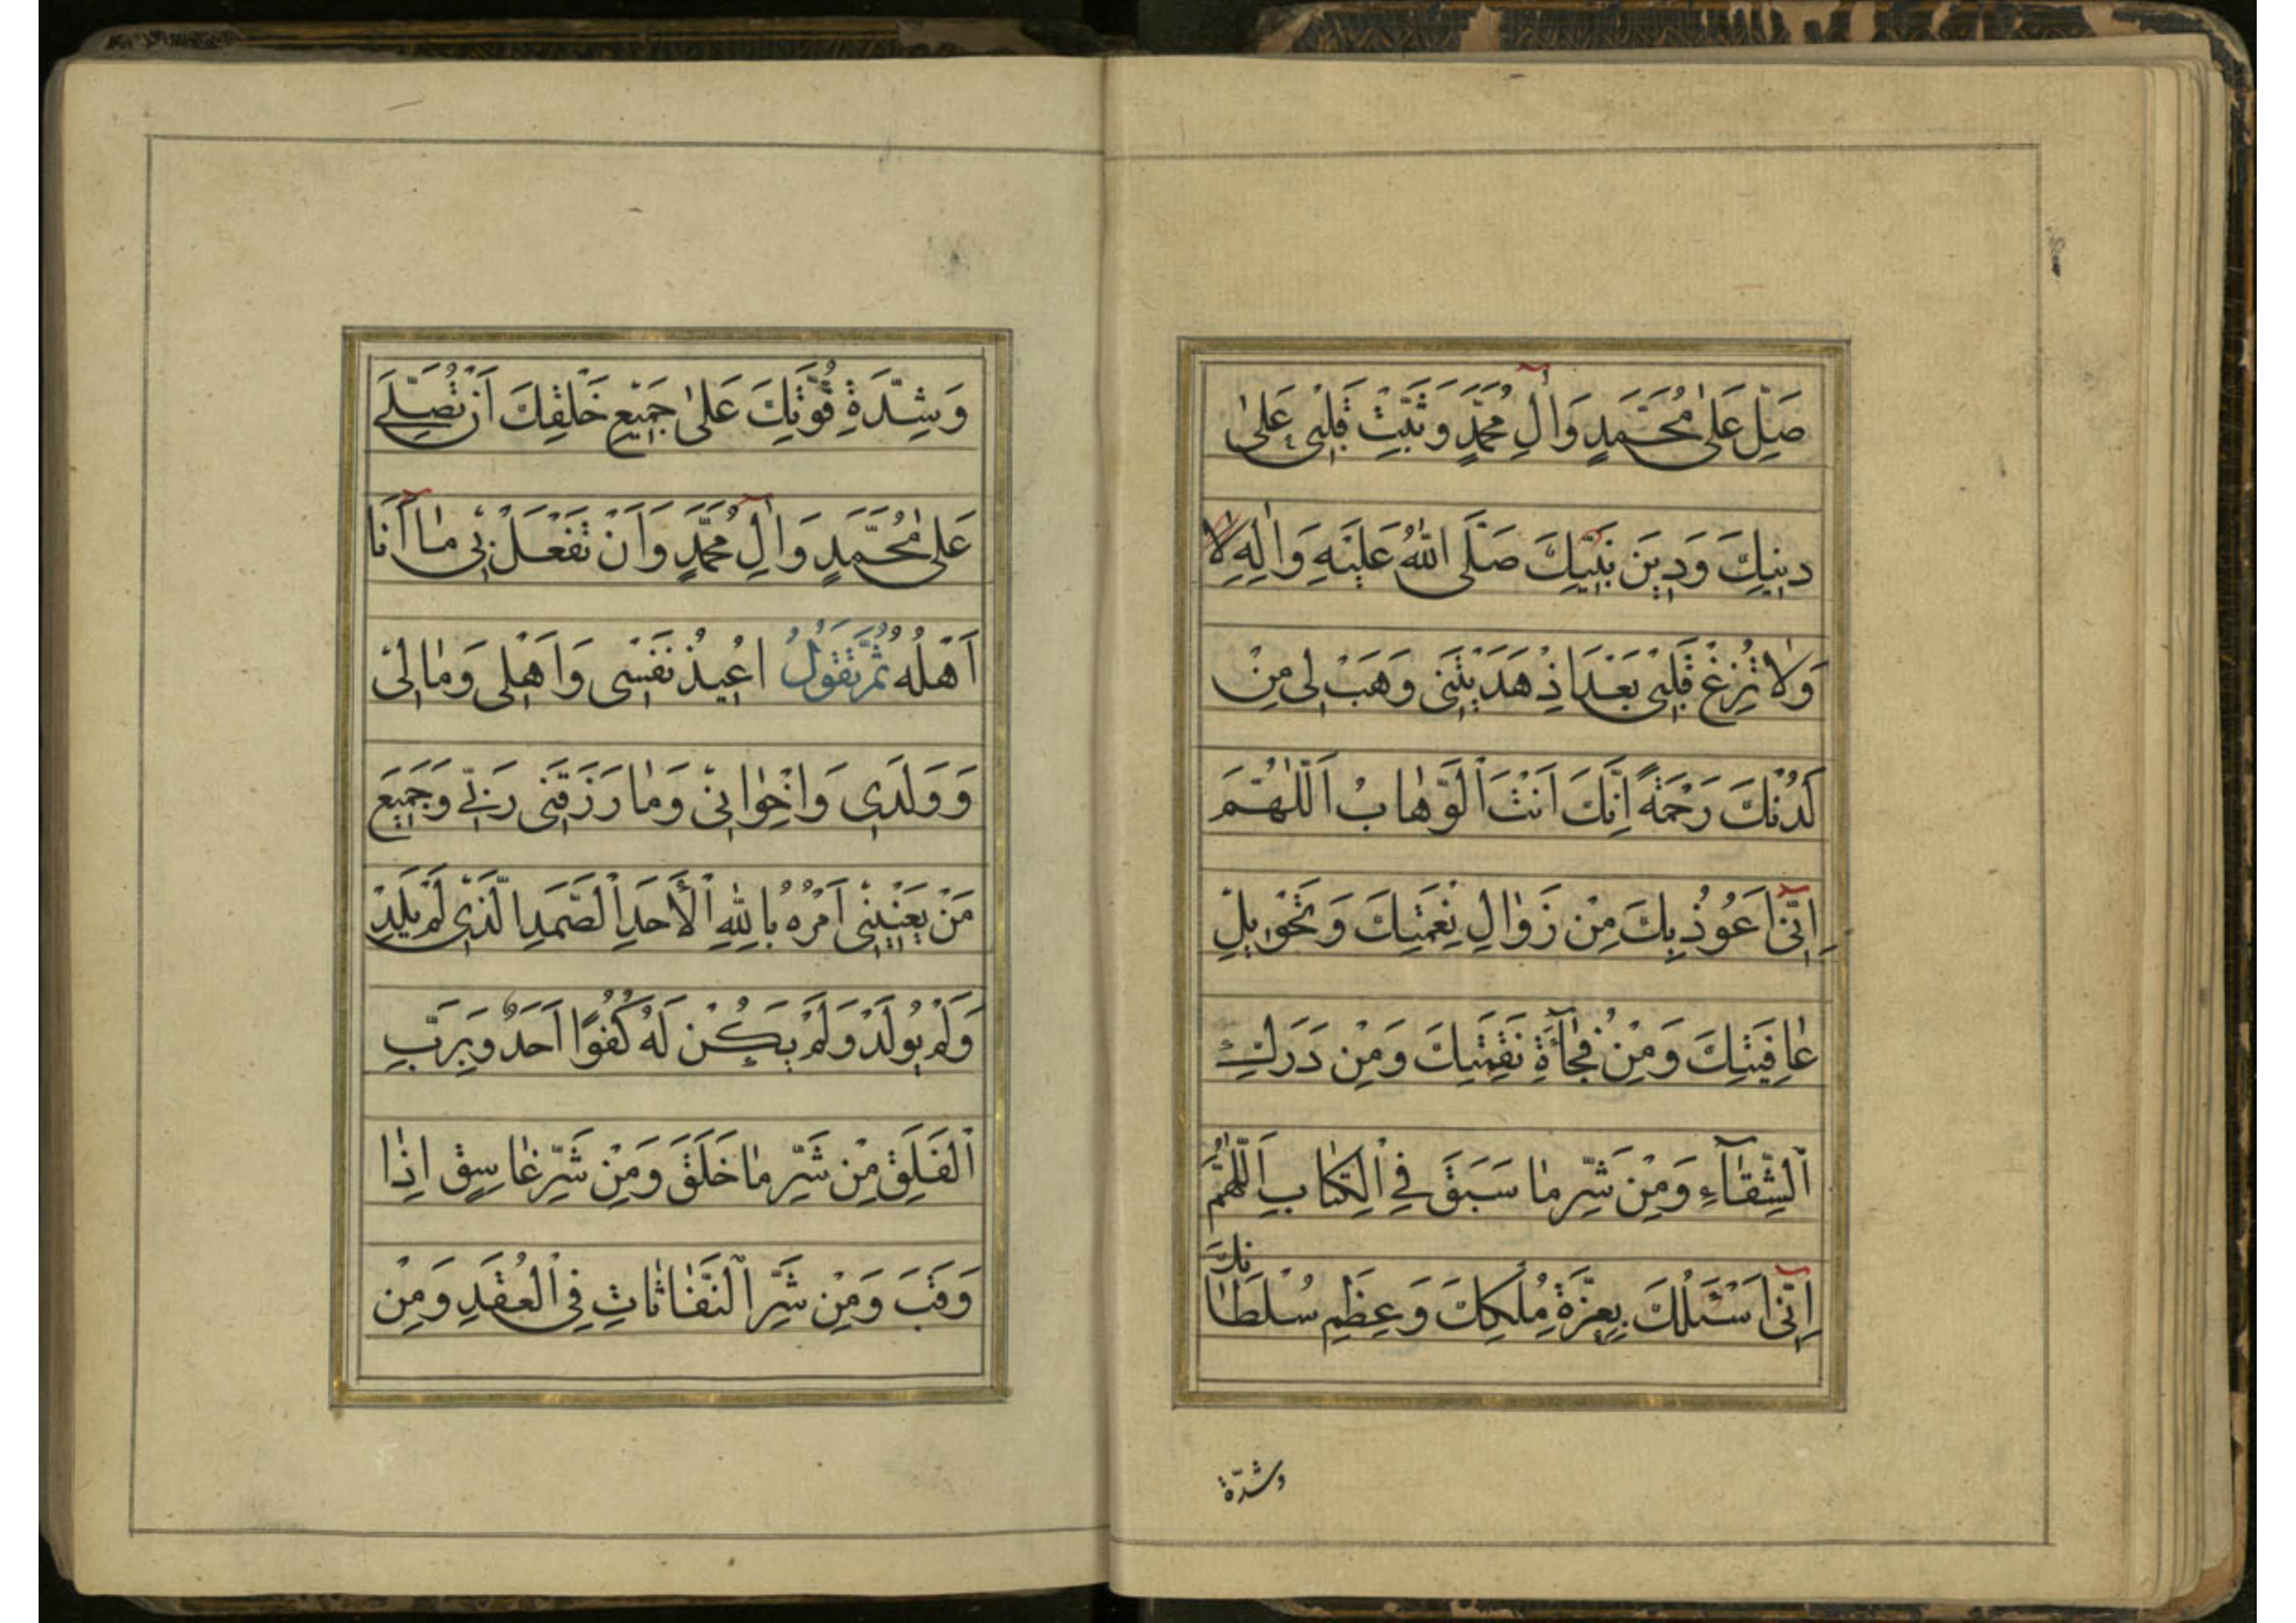 صَلِّ عَلىٰ مُحَمَّدٍ وَاٰلِ مُحَمَّدٍ وَثَبِّتْ قَلْبى عَلىٰ
دينِكَ وَدينِ نَبِيِّكَ صَلَّى اللّٰهُ عَلَيْهِ وَاٰلِهِ
وَلا تُزِغْ قَلْبى بَعْدَ اِذْ هَدَيْتَنى وَهَبْ لى مِنْ
لَدُنْكَ رَحْمَةً اِنَّكَ اَنْتَ الْوَهّٰابُ اَللّٰهُمَّ
اِنّى اَعُوذُ بِكَ مِنْ زَوٰالِ نِعْمَتِكَ وَتَحْويلِ
عٰافِيَتِكَ وَمِنْ فُجٰآءَةِ نَقِمَتِكَ وَمِنْ دَرَكِ
الشِّقٰآءِ وَمِنْ شَرِّ مٰا سَبَقَ فِى الْكِتٰابِ اَللّٰهُمَّ
اِنّى اَسْئَلُكَ بِعِزَّةِ مُلْكِكَ وَعِظَمِ سُلْطٰانِكَ
وشدّة
وَشِدَّةِ قُوَّتِكَ عَلىٰ جَميعِ خَلْقِكَ اَنْ تُصَلِّىَ
عَلىٰ مُحَمَّدٍ وَاٰلِ مُحَمَّدٍ وَاَنْ تَفْعَلَ بى مٰا اَنَا
اَهْلُهُ ثُمَّ تَقُولُ اُعيذُ نَفْسى وَاَهْلى وَمٰالى
وَوَلَدى وَاِخْوٰانى وَمٰا رَزَقَنى رَبّى وَجَميعَ
مَنْ يَعْنينى اَمْرُهُ بِاللّٰهِ الْأَحَدِ الصَّمَدِ الَّذى لَمْ يَلِدْ
وَلَمْ يُولَدْ وَلَمْ يَكُنْ لَهُ كُفُوًا اَحَدٌ وَبِرَبِّ
الْفَلَقِ مِنْ شَرِّ مٰا خَلَقَ وَمِنْ شَرِّ غٰاسِقٍ اِذٰا
وَقَبَ وَمِنْ شَرِّ النَّفّٰاثٰاتِ فِى الْعُقَدِ وَمِنْ